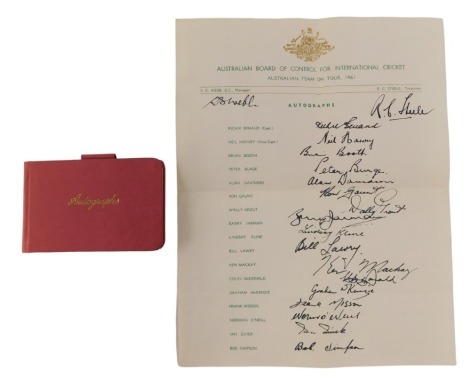 Autographs
AUSTRALIAN BOARD OF CONTROL FOR INTERNATIONAL CRICKET
AUSTRALIAN TEAM ON TOUR, 1961
S. G. WEBB, Q.C., Manager R. C. STEELE, Treasurer
R.C. Steele
AUTOGRAPHS
RICHIE BENAUD (Capt.) Richie Benaud
NEIL HARVEY (Vice-Capt.) Neil Harvey
BRIAN BOOTH Brian Booth
PETER BURGE Peter Burge
ALAN DAVIDSON Alan Davidson
RON GAUNT Ron Gaunt
WALLY GROUT Wally Grout
BARRY JARMAN Barry Jarman
LINDSAY KLINE Lindsay Kline
BILL LAWRY Bill Lawry
KEN MACKAY Ken Mackay
COLIN McDONALD McDonald
GRAHAM McKENZIE Graham McKenzie
FRANK MISSON Frank Misson
NORMAN O'NEILL Norman O'Neill
IAN QUICK Ian Quick
BOB SIMPSON Bob Simpson